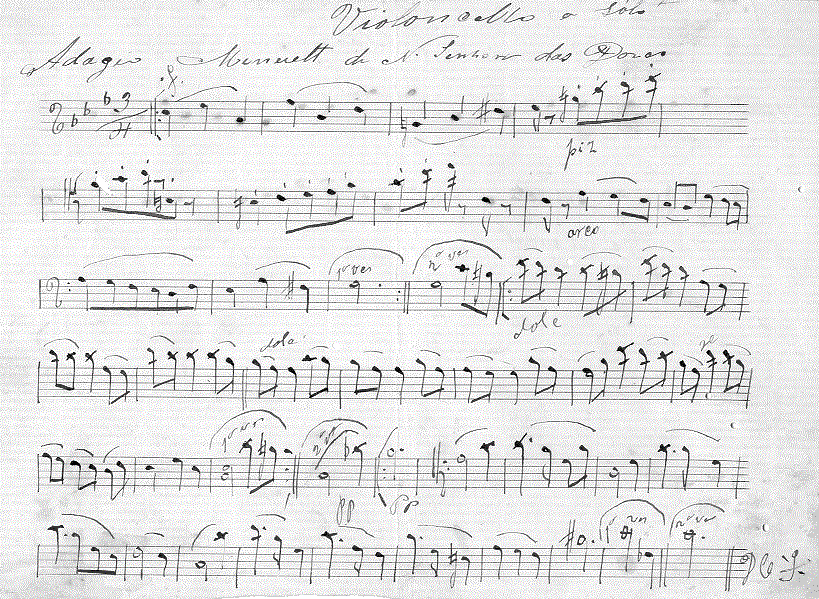 Violoncello a Solo
Adagio Menuett de N. Senhora das Dores
3
4
piz
arco
1ª vez 2ª vez
dole
dole
1ª vez 2ª vez
pp pp
1ª vez 2ª vez